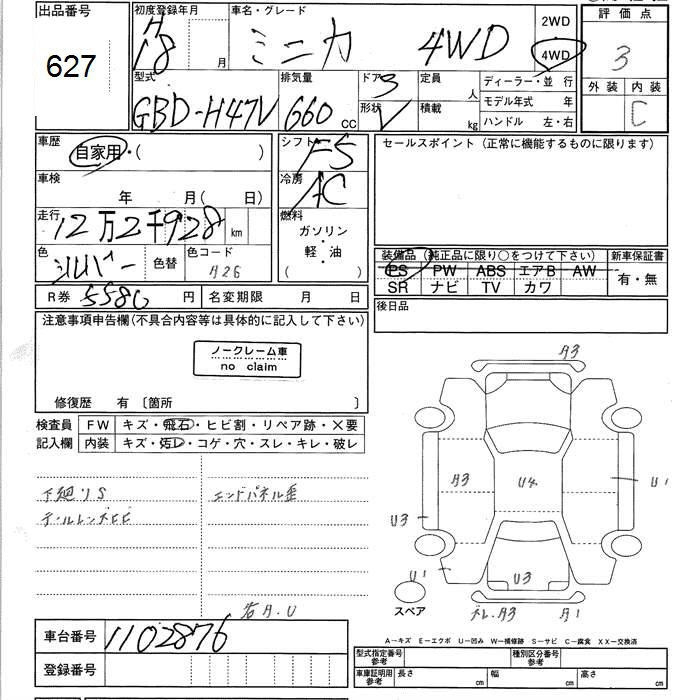 出品番号
627
初度登録年月
H
18 月
車名・グレード
ミニカ 4WD
2WD
4WD
評価点
3
外装 内装
C
型式
GBD-H47V
排気量
660 CC
ドア
3
形状
V
定員
人
積載
kg
ディーラー・並行
モデル年式 年
ハンドル 左・右
車歴
自家用・( )
シフト
F5
車検
年 月( 日)
冷房
AC
走行
12万2千928 km
燃料
ガソリン
・
軽・油
( )
色
シルバー
色替
色コード
A26
R券 5580 円
名変期限 月 日
セールスポイント (正常に機能するものに限ります)
装備品 (純正品に限り○をつけて下さい)
PS PW ABS エアB AW
SR ナビ TV カワ
新車保証書
有・無
後日品
注意事項申告欄(不具合内容等は具体的に記入して下さい)
ノークレーム車
no claim
修復歴 有 〔箇所 〕
検査員
記入欄
FW キズ・飛石・ヒビ割・リペア跡・×要
内装 キズ・汚レ・コゲ・穴・スレ・キレ・破レ
下廻りS
テールレンズヒビ
エンドパネル歪
右A.U
A3
A3
U4
U1
U3
U1
U3
A3
A1
スペア
A-キズ E-エクボ U-凹み W-補修跡 S-サビ C-腐食 XX-交換済
車台番号
1102876
登録番号
型式指定番号
参考
種別区分番号
参考
車庫証明用
参考
長さ cm
幅 cm
高さ cm